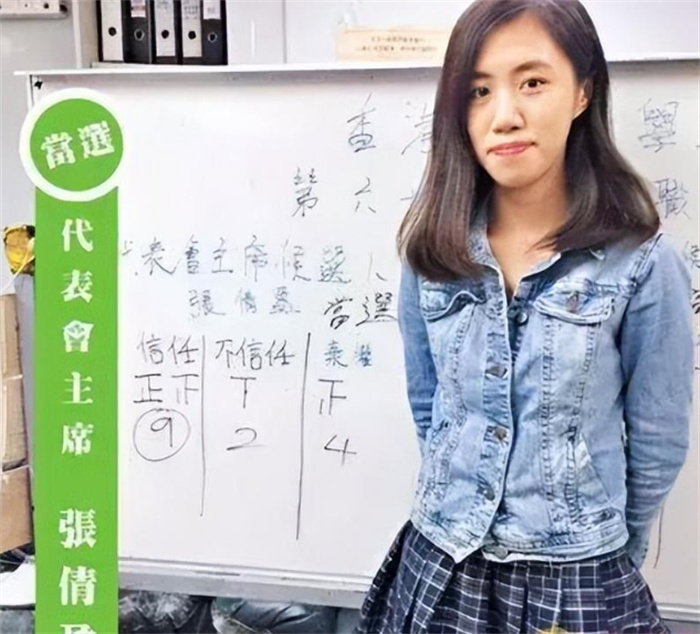 當選
代表會主席 張倩
香港 學
第六 職
表會主席候選人
張倩盈 當選
信任 不信任 棄權
正正 正
9 2 4